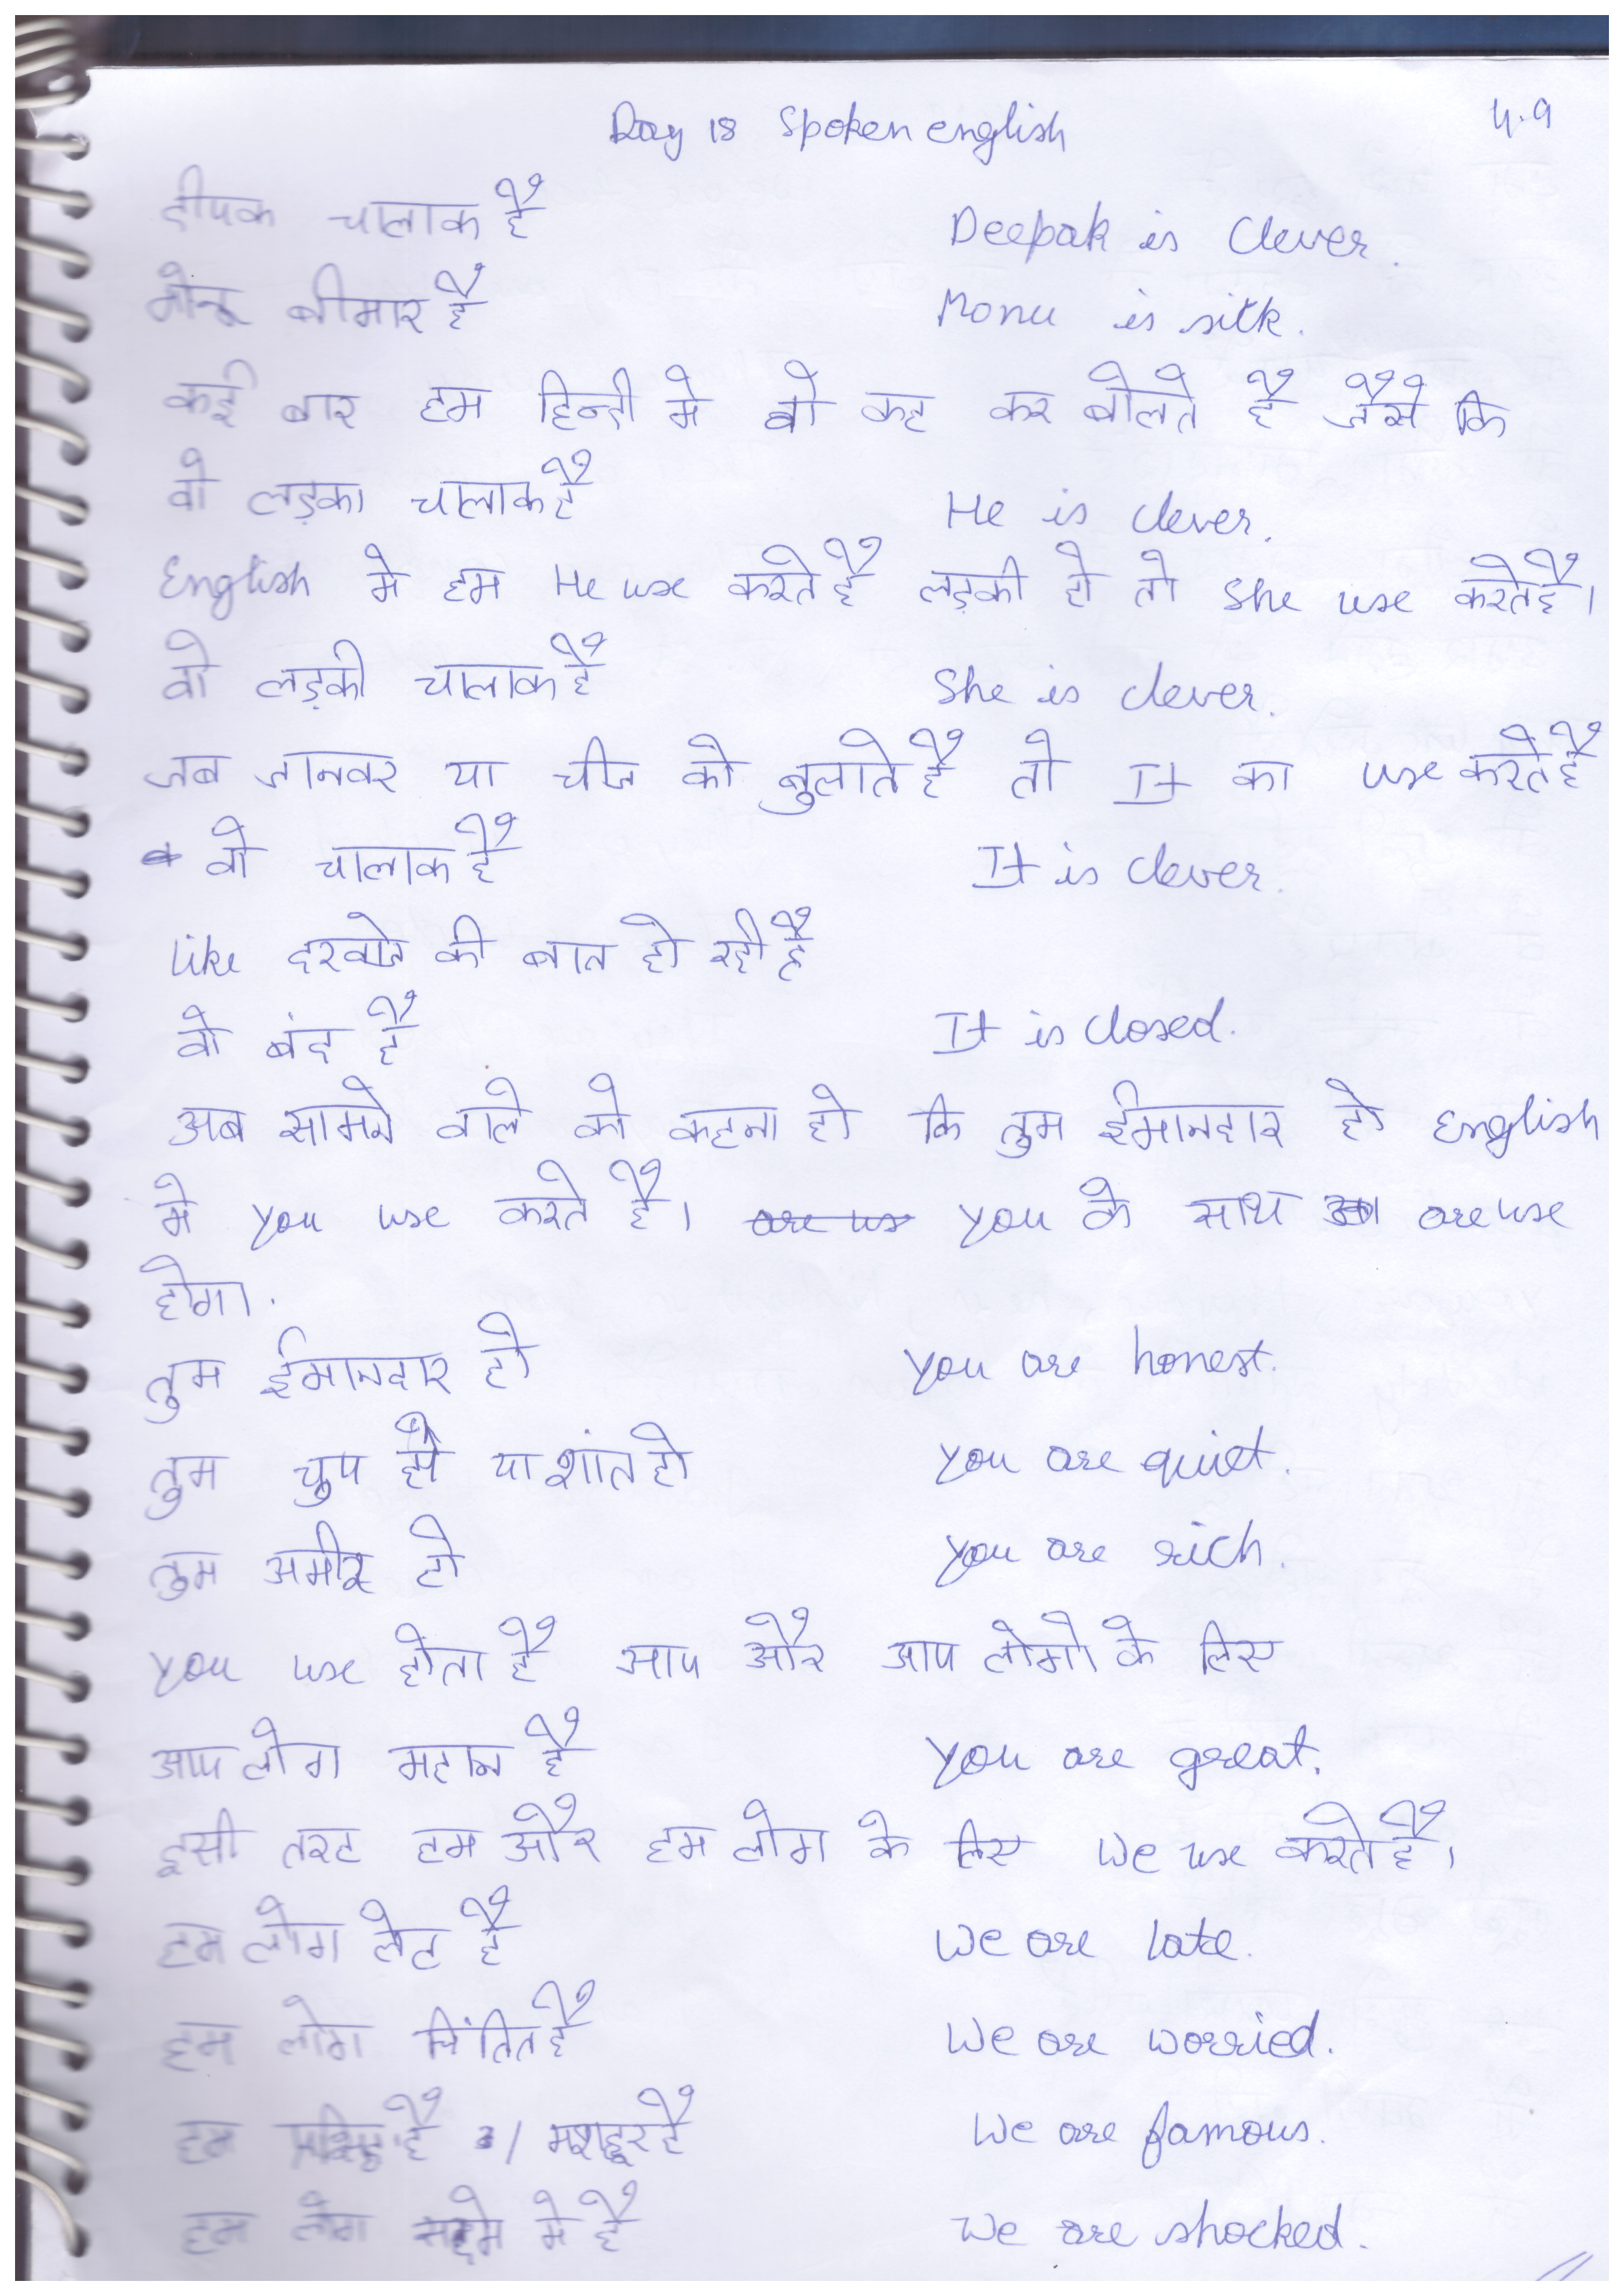 Day 18 Spoken english 4.9
दीपक चालाक है Deepak is clever.
मोनू बीमार है Monu is sitk.
कई बार हम हिन्दी मे वो कह कर बोलते है जैसे कि
वो लड़का चालाक है He is clever.
English मे हम He use करते है लड़की हो तो She use करते है।
वो लड़की चालाक है She is clever.
जब जानवर या चीज को बुलाते है तो It का use करते है
वो चालाक है It is clever.
like दरवाजे की बात हो रही है
वो बंद है It is closed.
अब सामने वाले को कहना हो कि तुम ईमानदार हो English
मे you use करते है। are us you के साथ are use
होगा.
तुम ईमानदार हो you are honest.
तुम चुप हो या शांत हो you are quiet.
तुम अमीर हो you are rich.
you use होता है आप और आप लोगो के लिए
आप लोग महान है you are great.
इसी तरह हम और हम लोग के लिए We use करते है।
हम लोग लेट है We are late.
हम लोग चिंतित है We are worried.
हम प्रसिद्ध है / मशहूर है We are famous.
हम लोग सदमे मे है We are shocked.